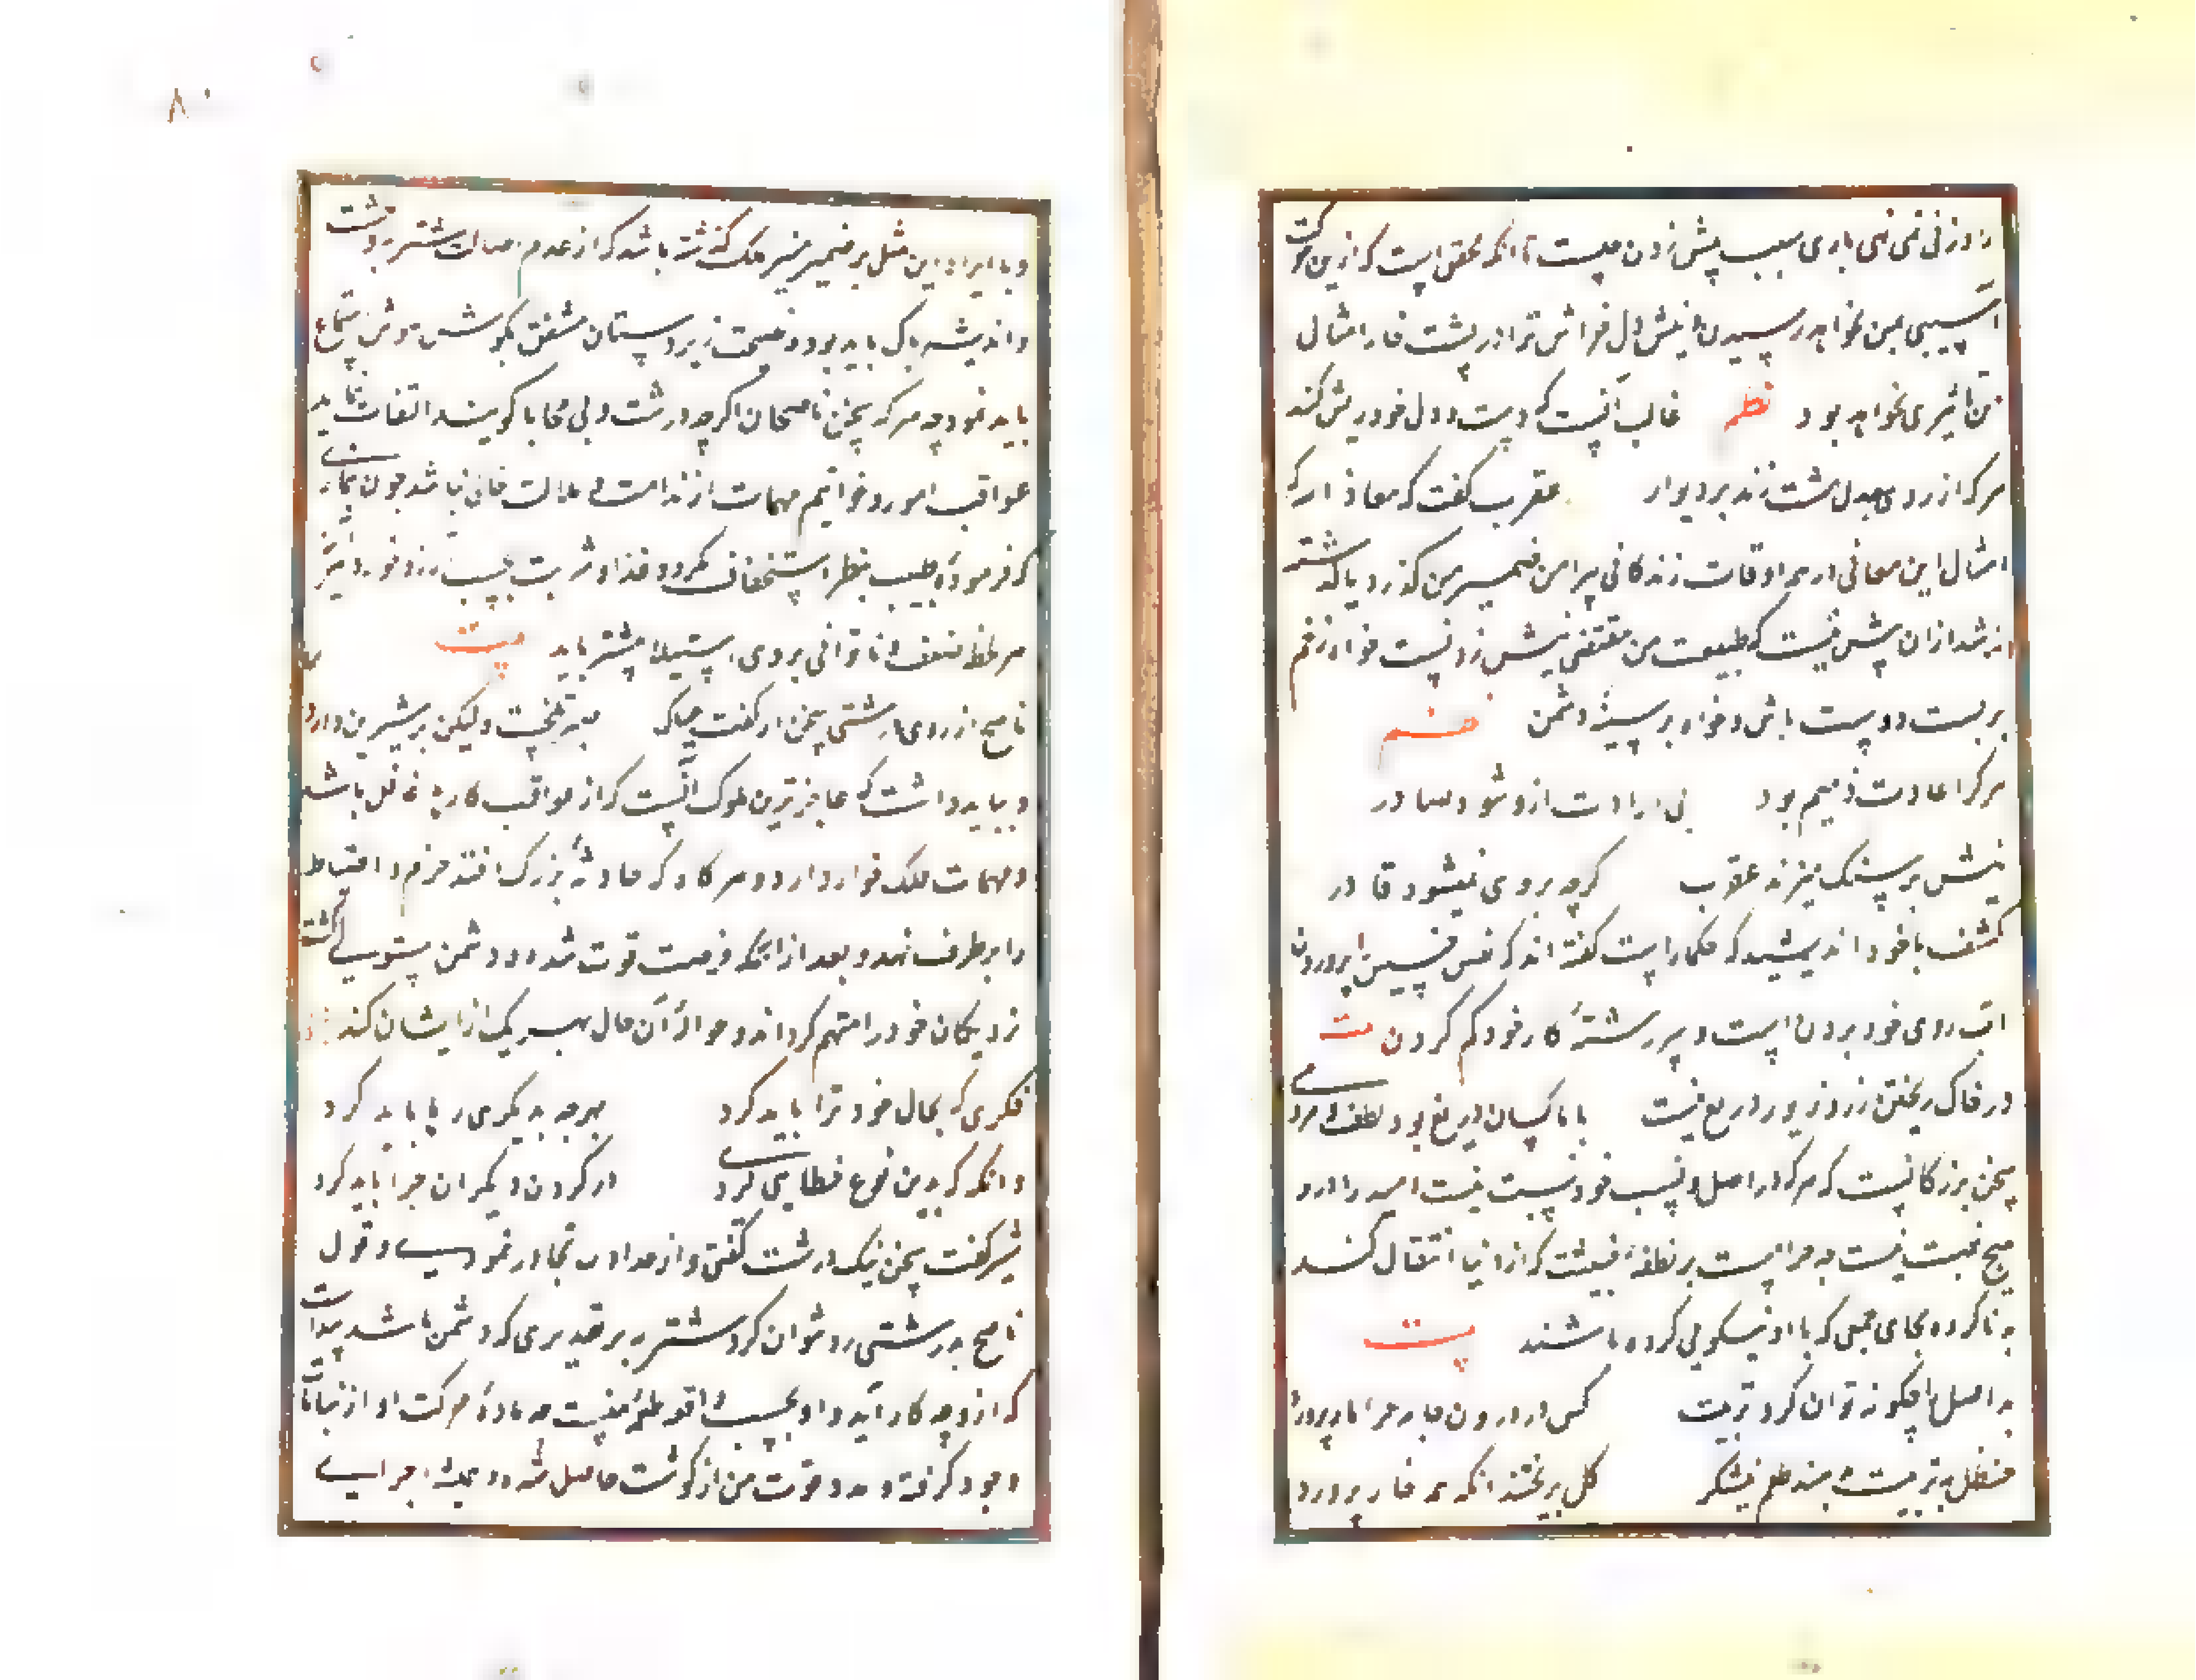 را درزنی نمی نمی باری سبب نیش زدن چیست با آنکه محقق است که ازین حرکت
آسیبی بمن نخواهد رسیدن و نیش دل خراش ترا در پشت خارا مثال
من تاثیری نخواهد بود نظم غالب آنست که دست و دل خود ریش کند
هرکه از روی جدل مشت زند بر دیوار عقرب گفت که معاذ الله که
امثال این معانی در همه اوقات زندگانی پیرامن ضمیر من گذرد یا گذشته
باشد ازان بیش نیست که طبیعت من مقتضی نیش زدنست خواه زخم
بر پشت دوست باشی و خواه بر سینه دشمن نظم
هرکرا عادت ذمیم بود بی ارادت ازو شود صادر
نیش بر سنگ میزند عقرب گرچه بر وی نمیشود قادر
کشف با خود اندیشید که حکما راست گفته اند که نفس خسیس را پروردن
آب روی خود بردن است و سر رشتهٔ کار خود گم کردن بیت
در خاک ریختن زر و زیور دریغ نیست با ناکسان دریغ بود لطف و مردمی
سخن بزرگانست که هرکه در اصل و نسب خود نسبت نیست امید را درو
هیچ نسبت نیست چه حرامست بر نطفهٔ خبیثه که از دنیا انتقال کند
بد ناکرده بجای جمعی که با او نیکویی کرده باشند بیت
بد اصل را چگونه توان کرد تربیت کس از درون جامه چرا مار پرورد
حنظل به تربیت ندهد طعم نیشکر گل برنچیند آنکه همه خار پرورد
۸۰
و با ایراد این مثل بر ضمیر منیر ملک گذشته باشد که از عدم اصالت شتربه دهشت
و اندیشه باک باید بود و نصیحت زیردستان مشفق بگوش هوش استماع
باید نمود چه هرکه بسخن ناصحان اگرچه درشت و بی محابا گویند التفات ننماید
عواقب امور و خواتیم مهمات از ندامت و ملالت خالی نباشد چون بیماری
که فرمودهٔ طبیب بنظر استخفاف نگرد و غذا و شربت بحسب آرزو خورد هر آینه
هر لحظه ضعف و ناتوانی بر وی استیلا بیشتر یابد بیت
ناصح از روی درشتی سخن ار گفت چه باک صبر تلخست ولیکن بر شیرین دارد
و بباید دانست که عاجزترین ملوک آنست که از عواقب کارها غافل باشد
و مهمات ملک خوار دارد و هرگاه که حادثهٔ بزرگ افتد حزم و احتیاط
را بر طرف نهد و بعد از آنکه فرصت فوت شده و دشمن مستولی گشته
نزدیکان خود را متهم گرداند و حوالهٔ آن حال بهر یک از ایشان کند
فکری که بحال خود ترا باید کرد هرچه بدیگری رها باید کرد
و آنگه که بدین نوع خطایی کردی در گردن دیگران چرا باید کرد
شیر گفت سخن نیک درشت گفتی و از حد ادب تجاوز نمودی و قول
ناصح بدرشتی رد نتوان کرد شتربه بر تقدیری که دشمن باشد پیداست
که ازو چه کار آید و او بحسب واقع طعمهٔ منست چه مادهٔ حرکت او از نبات
وجود گرفته و مدد قوت من از گوشت حاصل شده و همیشه اجزای